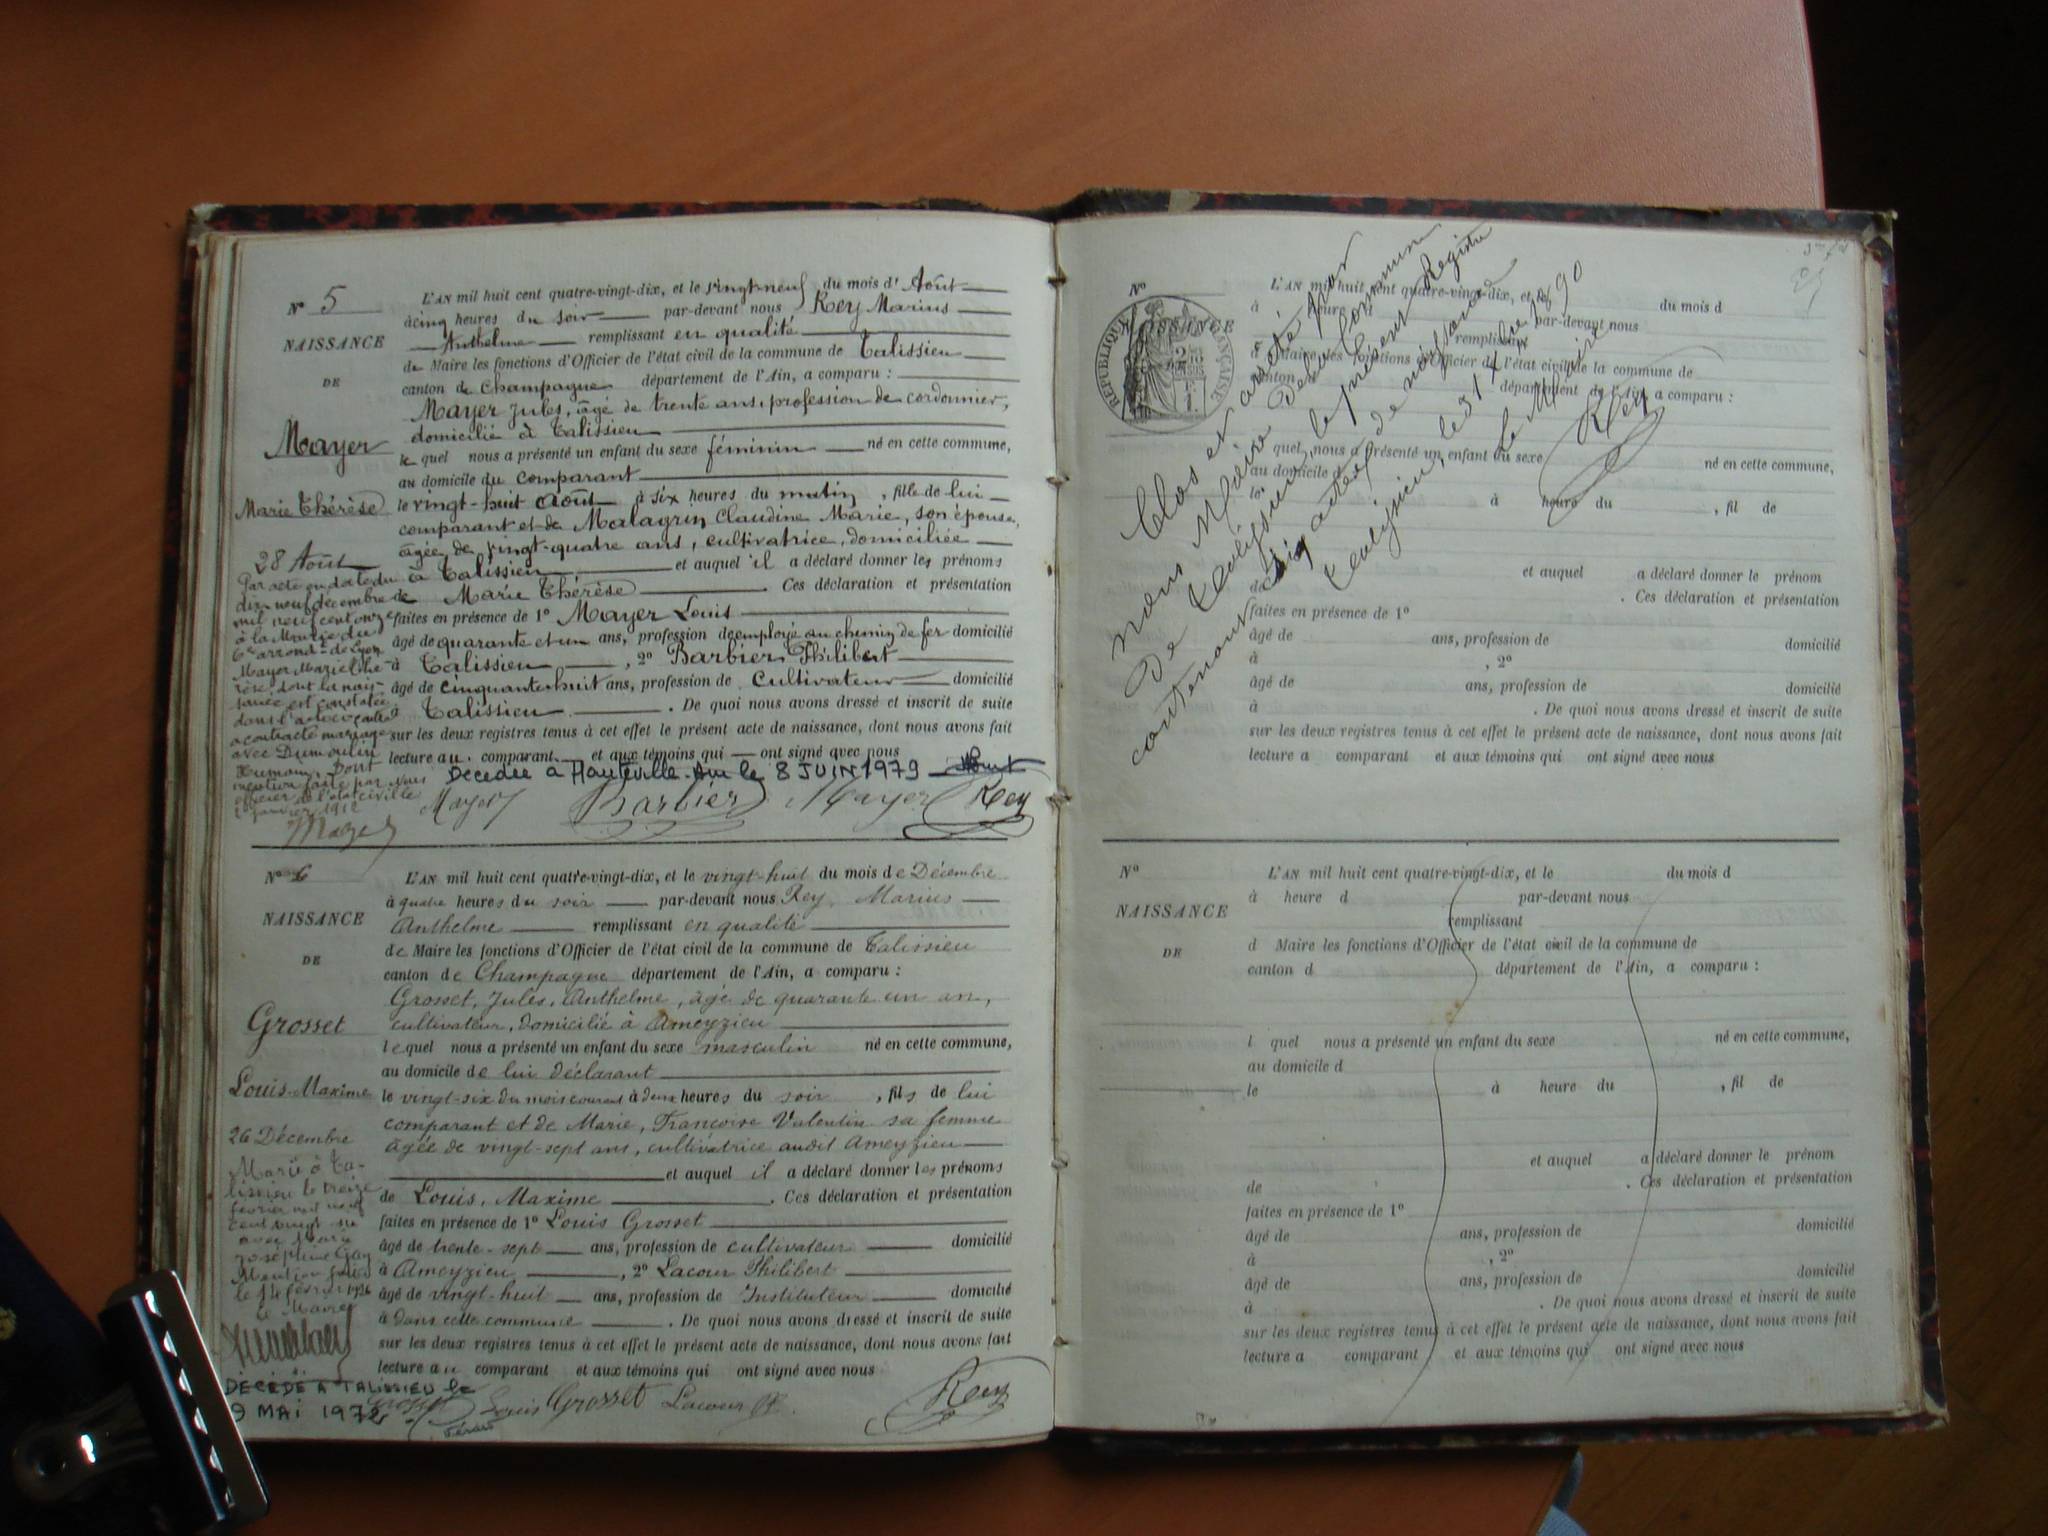 N° 5
NAISSANCE
DE
Mayer
Marie Thérèse
28 Août
Par acte en date du
dix neuf décembre
mil neuf cent onze
à la Mairie du
6e arrondt de Lyon
Mayer Marie Thé-
rèse, dont la nais-
sance est constatée
dans l'acte ci-contre
a contracté mariage
avec Dumoulin
dont
mention faite par nous
officier de l'état civil le
janvier 1912
Mayer
L'AN mil huit cent quatre-vingt-dix, et le vingt-neuf du mois d'Août
à cinq heures du soir par-devant nous Rey Marius
Anthelme remplissant en qualité
de Maire les fonctions d'Officier de l'état civil de la commune de Talissieu
canton de Champagne département de l'Ain, a comparu :
Mayer Jules, âgé de trente ans, profession de cordonnier,
domicilié à Talissieu
le quel nous a présenté un enfant du sexe féminin né en cette commune,
au domicile du comparant
le vingt-huit Août à six heures du matin, fille de lui
comparant et de Malagrin Claudine Marie, son épouse,
âgée de vingt-quatre ans, cultivatrice, domiciliée
à Talissieu et auquel il a déclaré donner les prénoms
de Marie Thérèse. Ces déclaration et présentation
faites en présence de 1° Mayer Louis
âgé de quarante et un ans, profession de employé au chemin de fer domicilié
à Talissieu, 2° Barbier Philibert
âgé de cinquante-huit ans, profession de cultivateur domicilié
à Talissieu. De quoi nous avons dressé et inscrit de suite
sur les deux registres tenus à cet effet le présent acte de naissance, dont nous avons fait
lecture au comparant et aux témoins qui ont signé avec nous
Décédée à Hauteville-Ain le 8 JUIN 1979
Mayer Barbier Mayer Rey
N° 6
NAISSANCE
DE
Grosset
Louis-Maxime
26 Décembre
Marié à Ta-
lissieu le treize
février mil neuf
cent vingt six
avec Marie
Joséphine Gay
Mention faite
le 14 février 1926
le Maire
DÉCÉDÉ A TALISSIEU le
9 MAI 1972
L'AN mil huit cent quatre-vingt-dix, et le vingt-huit du mois de Décembre
à quatre heures du soir par-devant nous Rey Marius
Anthelme remplissant en qualité
de Maire les fonctions d'Officier de l'état civil de la commune de Talissieu
canton de Champagne département de l'Ain, a comparu :
Grosset, Jules, Anthelme, âgé de quarante un an,
cultivateur, domicilié à Ameyzieu
lequel nous a présenté un enfant du sexe masculin né en cette commune,
au domicile de lui déclarant
le vingt-six du mois courant à deux heures du soir, fils de lui
comparant et de Marie, Françoise Valentin sa femme
âgée de vingt-sept ans, cultivatrice audit Ameyzieu
et auquel il a déclaré donner les prénoms
de Louis, Maxime. Ces déclaration et présentation
faites en présence de 1° Louis Grosset
âgé de trente-sept ans, profession de cultivateur domicilié
à Ameyzieu, 2° Lacour Philibert
âgé de vingt-huit ans, profession de Instituteur domicilié
à dans cette commune. De quoi nous avons dressé et inscrit de suite
sur les deux registres tenus à cet effet le présent acte de naissance, dont nous avons fait
lecture au comparant et aux témoins qui ont signé avec nous
Grosset Louis Grosset Lacour Ph. Rey
Clos et arrêté par
nous Maire de la Commune
de Talissieu, le présent Registre
contenant six actes de naissance
Talissieu, le 31 Xbre 1890
Le Maire
Rey
N°
NAISSANCE
RÉPUBLIQUE FRANÇAISE
L'AN mil huit cent quatre-vingt-dix, et le du mois d
à heure d par-devant nous
remplissant
d Maire les fonctions d'Officier de l'état civil de la commune de
canton d département de l'Ain, a comparu :
l quel nous a présenté un enfant du sexe né en cette commune,
au domicile d
le à heure du , fil de
et auquel a déclaré donner le prénom
de . Ces déclaration et présentation
faites en présence de 1°
âgé de ans, profession de domicilié
à , 2°
âgé de ans, profession de domicilié
à . De quoi nous avons dressé et inscrit de suite
sur les deux registres tenus à cet effet le présent acte de naissance, dont nous avons fait
lecture a comparant et aux témoins qui ont signé avec nous
N°
NAISSANCE
DE
L'AN mil huit cent quatre-vingt-dix, et le du mois d
à heure d par-devant nous
remplissant
d Maire les fonctions d'Officier de l'état civil de la commune de
canton d département de l'Ain, a comparu :
l quel nous a présenté un enfant du sexe né en cette commune,
au domicile d
le à heure du , fil de
et auquel a déclaré donner le prénom
de . Ces déclaration et présentation
faites en présence de 1°
âgé de ans, profession de domicilié
à , 2°
âgé de ans, profession de domicilié
à . De quoi nous avons dressé et inscrit de suite
sur les deux registres tenus à cet effet le présent acte de naissance, dont nous avons fait
lecture a comparant et aux témoins qui ont signé avec nous